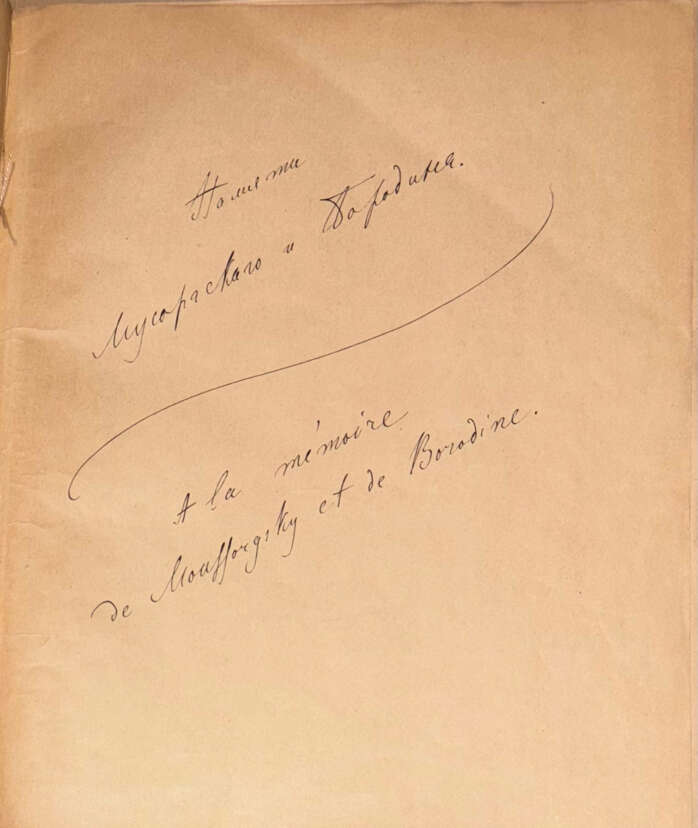 Памяти
Мусоргскаго и Бородина.
A la mémoire
de Moussorgsky et de Borodine.